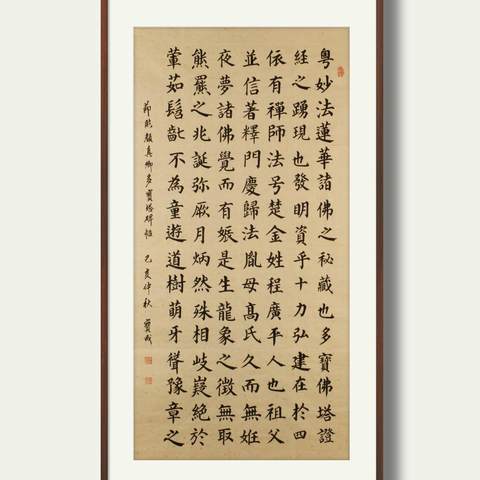 粵妙法蓮華諸佛之秘藏也多寶佛塔證
經之踴現也發明資乎十力弘建在於四
依有禪師法号楚金姓程廣平人也祖父
並信著釋門慶歸法胤母髙氏久而無姙
夜夢諸佛覺而有娠是生龍象之徵無取
熊羆之兆誕弥厥月炳然殊相岐嶷絕於
葷茹髫齔不為童遊道樹萌牙聳豫章之
節臨顏真卿多寶塔碑帖 己亥仲秋